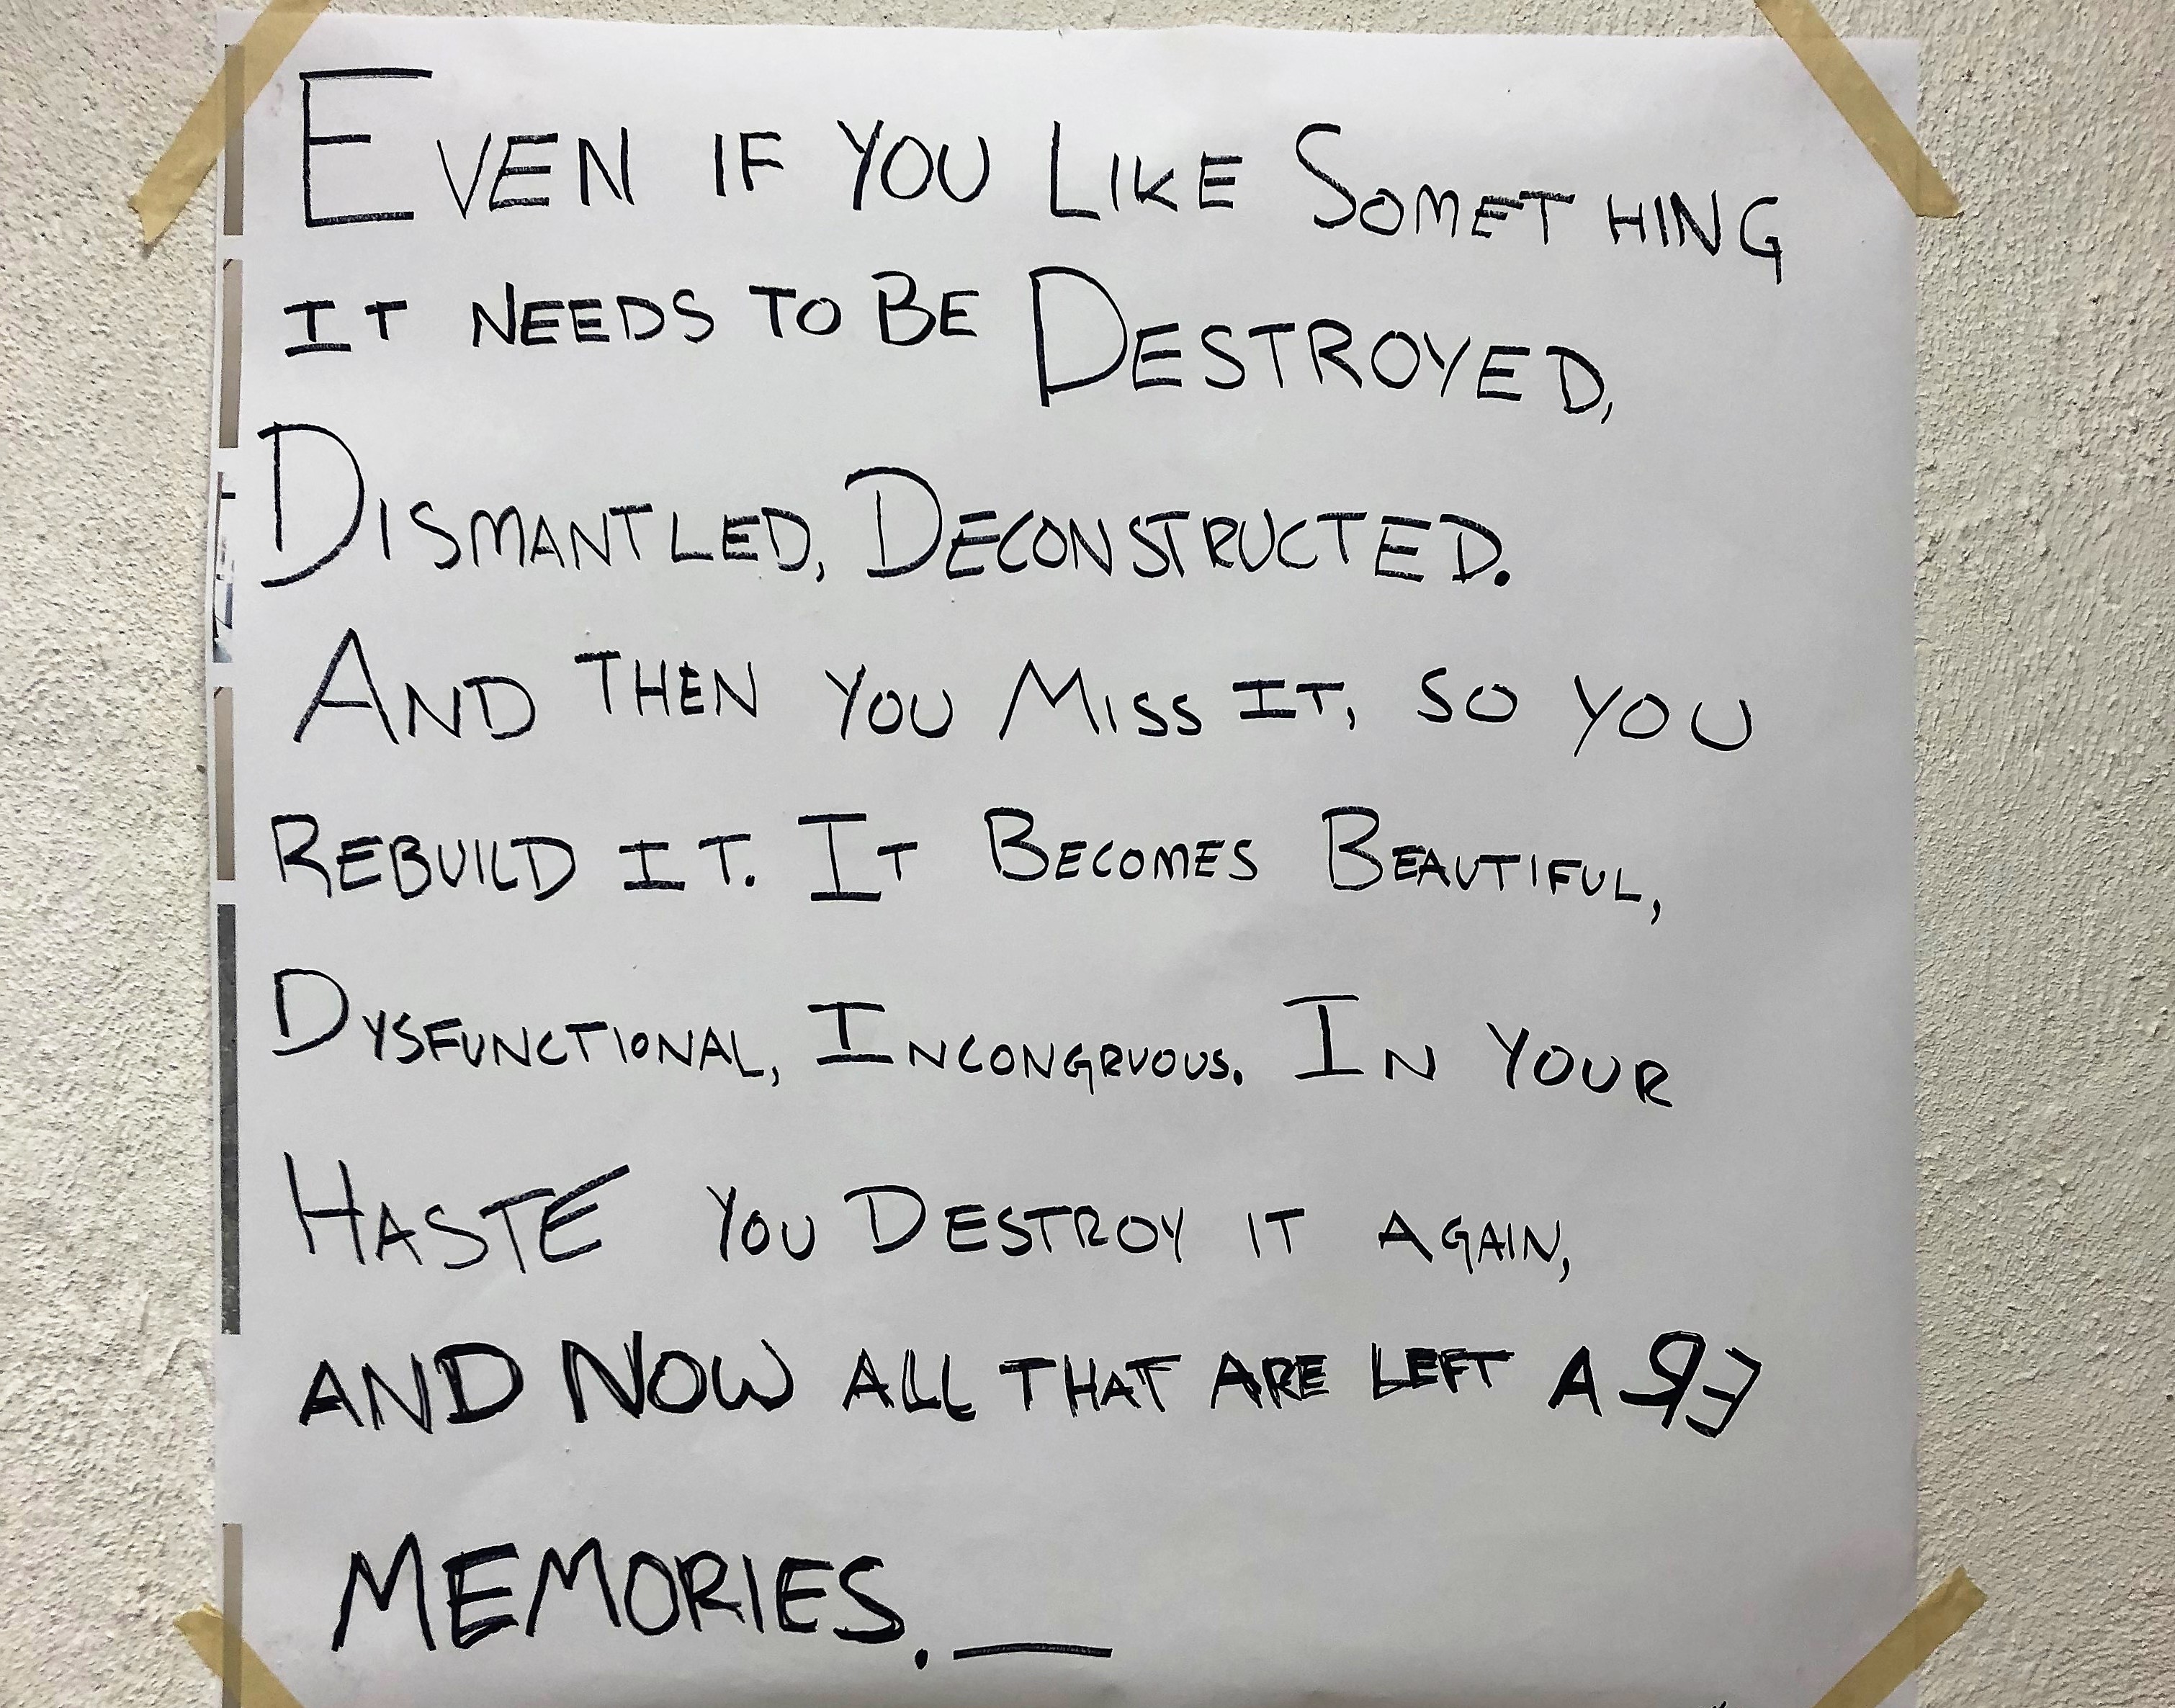 EVEN IF YOU LIKE SOMETHING
IT NEEDS TO BE DESTROYED,
DISMANTLED, DECONSTRUCTED.
AND THEN YOU MISS IT, SO YOU
REBUILD IT. IT BECOMES BEAUTIFUL,
DYSFUNCTIONAL, INCONGRUOUS. IN YOUR
HASTE YOU DESTROY IT AGAIN,
AND NOW ALL THAT ARE LEFT ARE
MEMORIES. —